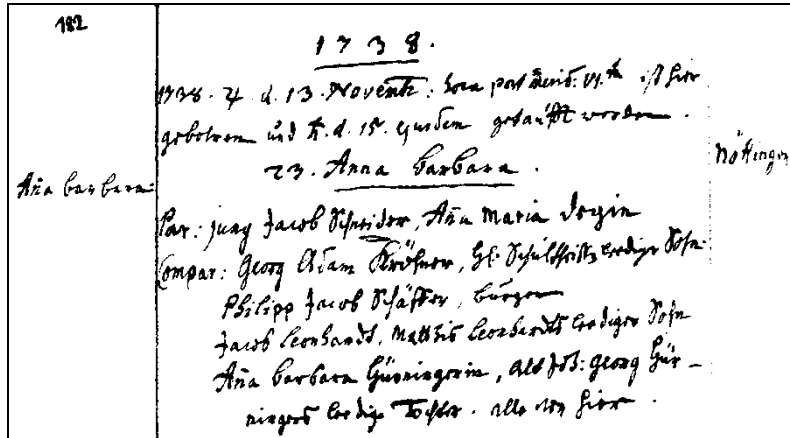 182
1738.
1738. 4 d. 13. Novembr: hora post merid: VI.ta ist hier
gebohren und ħ. d. 15. ejusdem getaufft worden.
23. Anna Barbara.
Nöttingen
Aña Barbara.
Par: jung Jacob Schneider, Aña Maria
Compar: Georg Adam Kröhner, H. Schultheißen ledige Sohn.
Philipp Jacob Schäffer, burger
Jacob Leonhardt, Matthis Leonhardts lediger Sohn
Aña Barbara Gürningerin, alt Joh: Georg Gür-
ningers ledige Tochter. alle von hier.